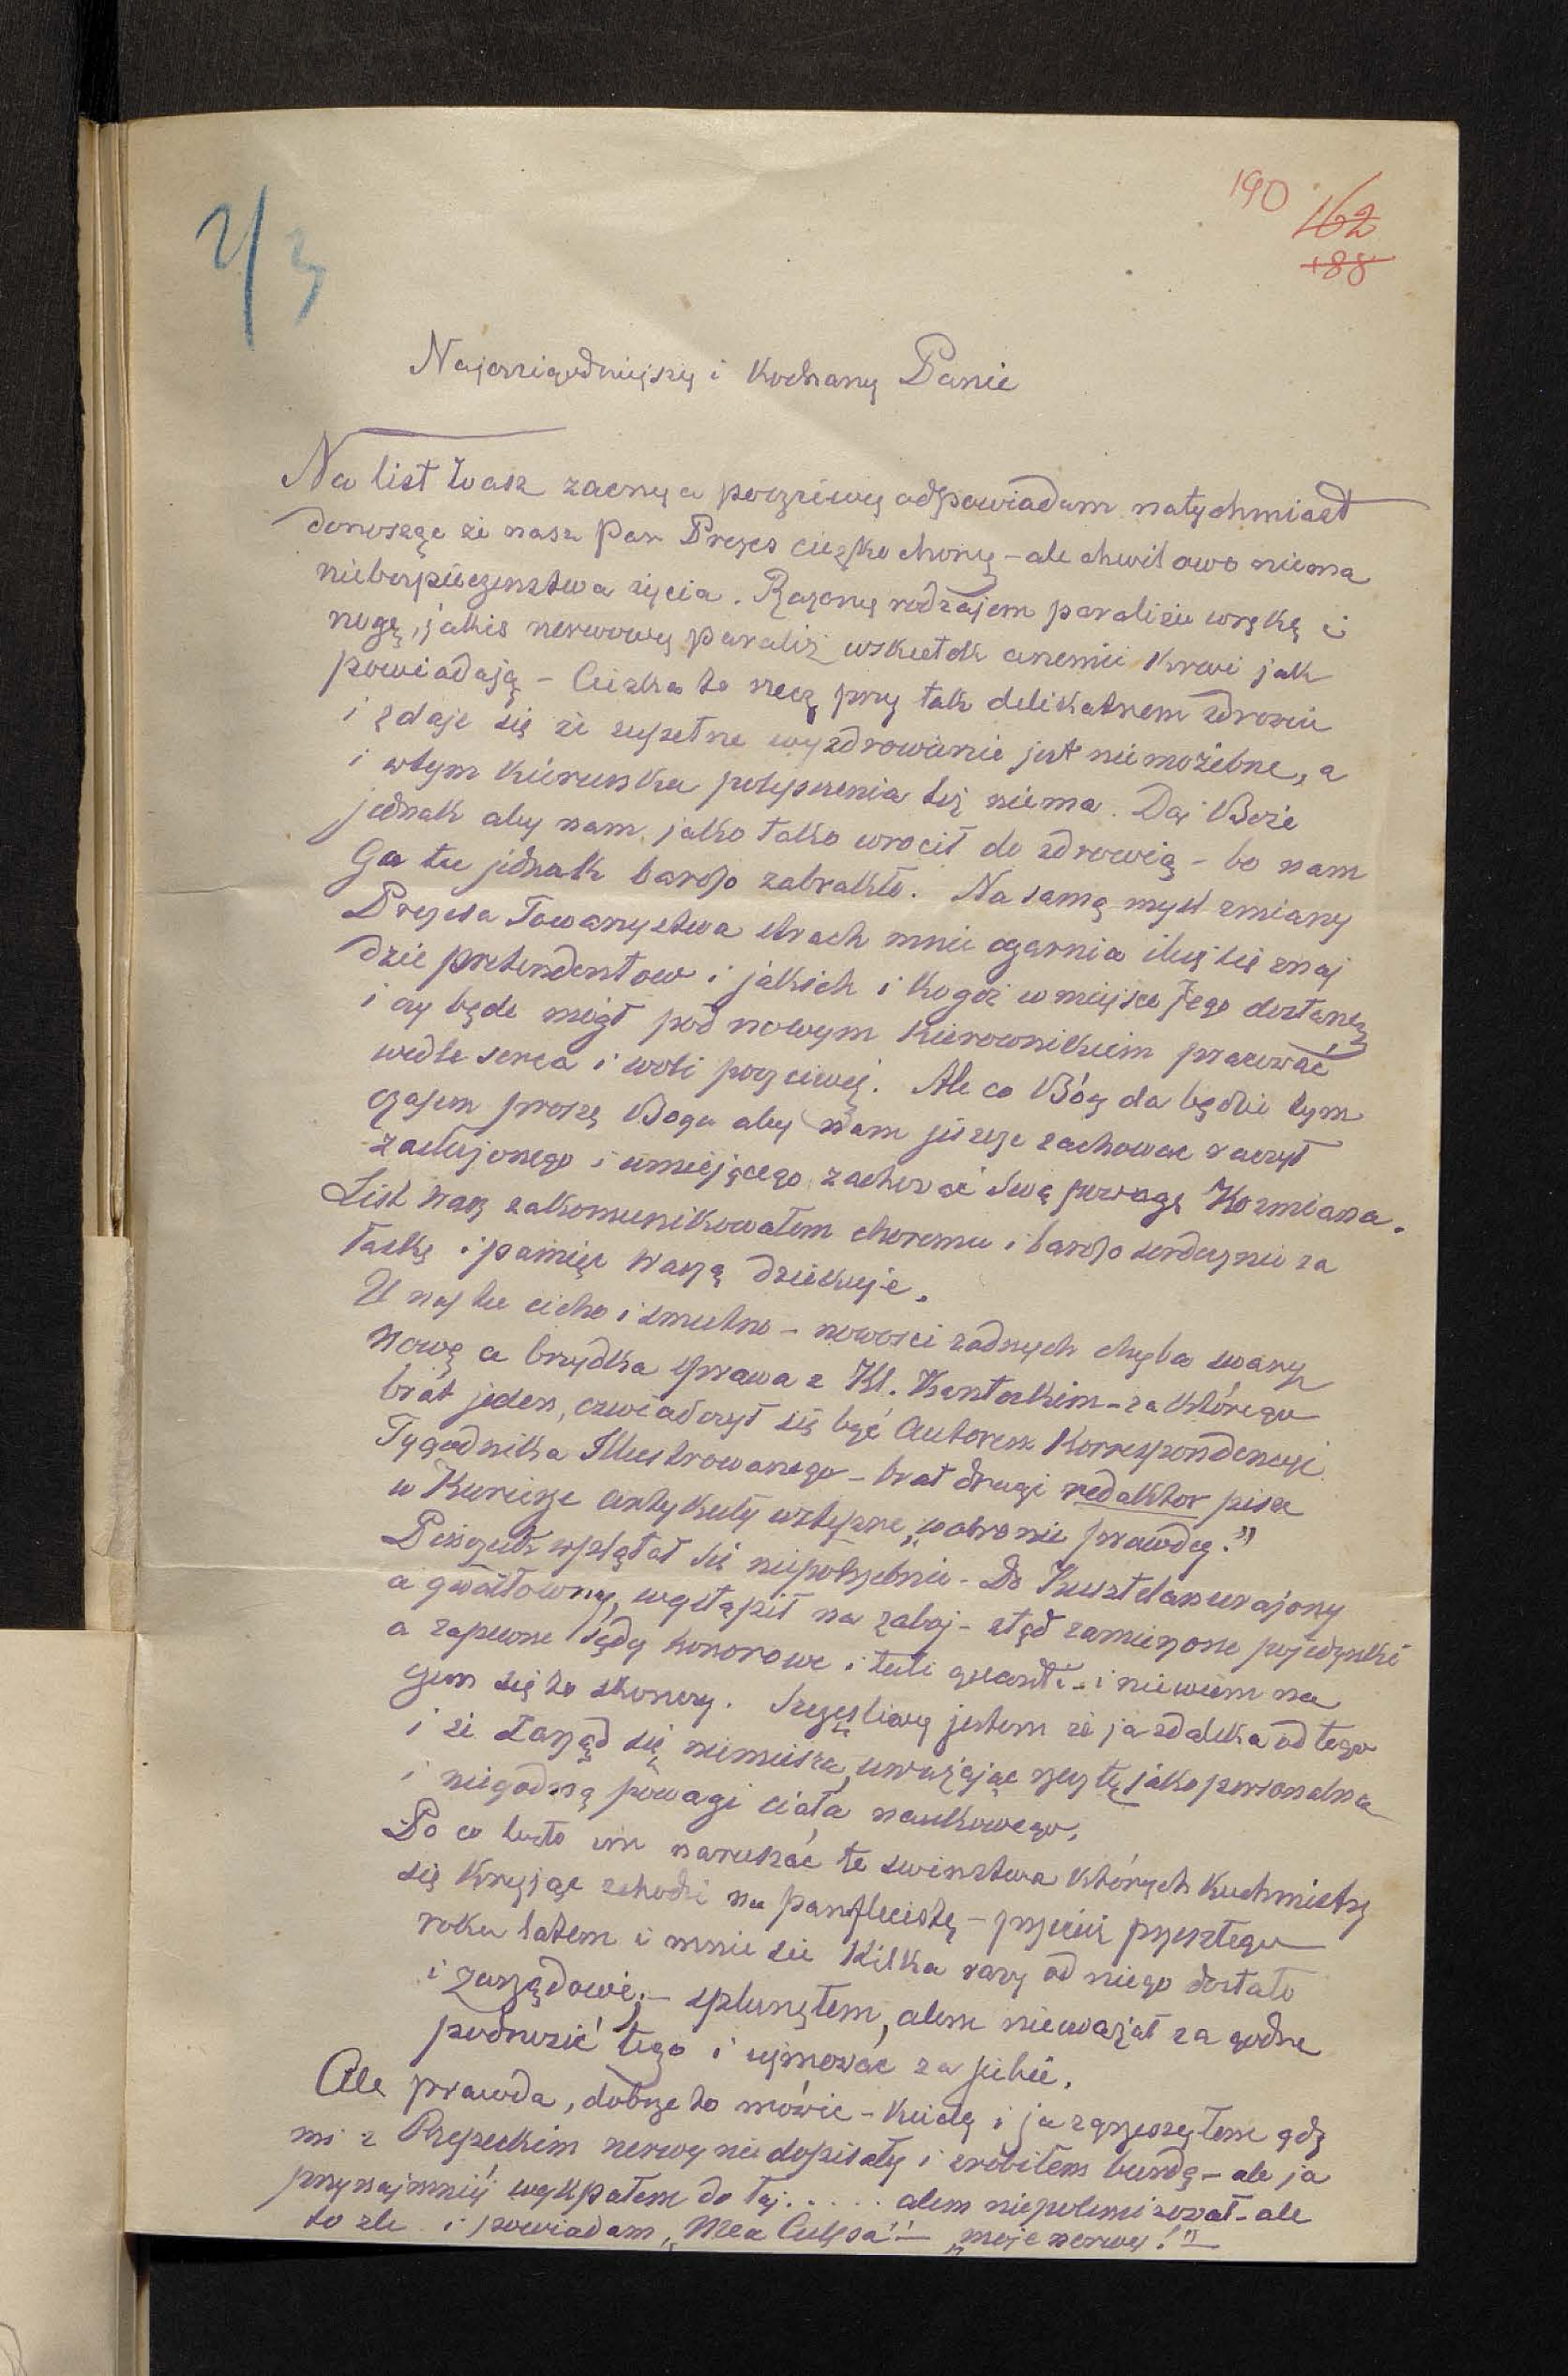 2/3
190 162
188
Najczcigodniejszy i Kochany Panie
Na list Wasz zacny a poczciwy odpowiadam natychmiast
donosząc że nasz Pan Prezes ciężko chory – ale chwilowo niema
niebezpieczenstwa życia. Rażony rodzajem paraliżu w rękę i
nogę, jakiś nerwowy paraliż wskutek anemii krwi jak
powiadają – Ciężka to rzecz przy tak delikatnem zdrowiu
i zdaje się że zupełne wyzdrowienie jest niemożebne, a
i w tym kierunku polepszenia też niema. Daj Boże
jednak aby nam jako tako wrocił do zdrowia – bo nam
Go tu jednak bardzo zabrakło. Na samą mysl zmiany
Prezesa Towarzystwa strach mnie ogarnia iluż się znaj
dzie pretendentow i jakich i kogoż w miejsce Jego dostaniem
i czy będe mógł pod nowym kierownikiem pracować
wedle serca i woli poczciwej. Ale co Bóg da będzie tym
czasem proszę Boga aby nam jeszcze zachowac raczył
zasłużonego i umiejącego zachować swą powagę Kozmiana.
List Wasz zakomunikowałem choremu i bardzo serdecznie za
łaskę i pamięc Waszą dziekuje.
U nas tu cicho i smutno – nowosci żadnych chyba swary
nowe a brzydka sprawa z Kl. Kanteckim – za którego
brat jeden, oswiadczył się być Autorem Korrespondencyi
Tygodnika Illustrowanego – brat drugi redaktor pisze
w Kuryerze artykuły wstępne „w obronie prawdy."
wplątał się niepotrzebnie – Do
a gwałtowny, wystąpił na zaboj – ztąd zamierzone pojedynki
a zapewne sądy honorowe i tuti quanti – i niewiem na
czem się to skonczy. Szczęsliwy jestem że ja zdaleka od tego
i że Zarząd się niemiesza, uważając rzecz tę jako personalna
i niegodną powagi ciała naukowego.
Po co było im naruszać te swinstwa których Kuchmistrz
się kryjąc schodzi na panfleciste – przecież przeszłego
roku latem i mnie sie kilka razy od niego dostało
i zarządowi, – splunąłem, alem nieuważał za godne
podnosić tego i ujmować za siebie.
Ale prawda, dobrze to mówic – kiedy i ja zgrzeszyłem gdy
mi z Rzepeckim nerwy nie dopisały i zrobiłem burdę – ale ja
przynajmniéj wysypałem do łaj..... alem niepolemizował – ale
to zle i powiadam „Mea Culpa" – „moje nerwy!"